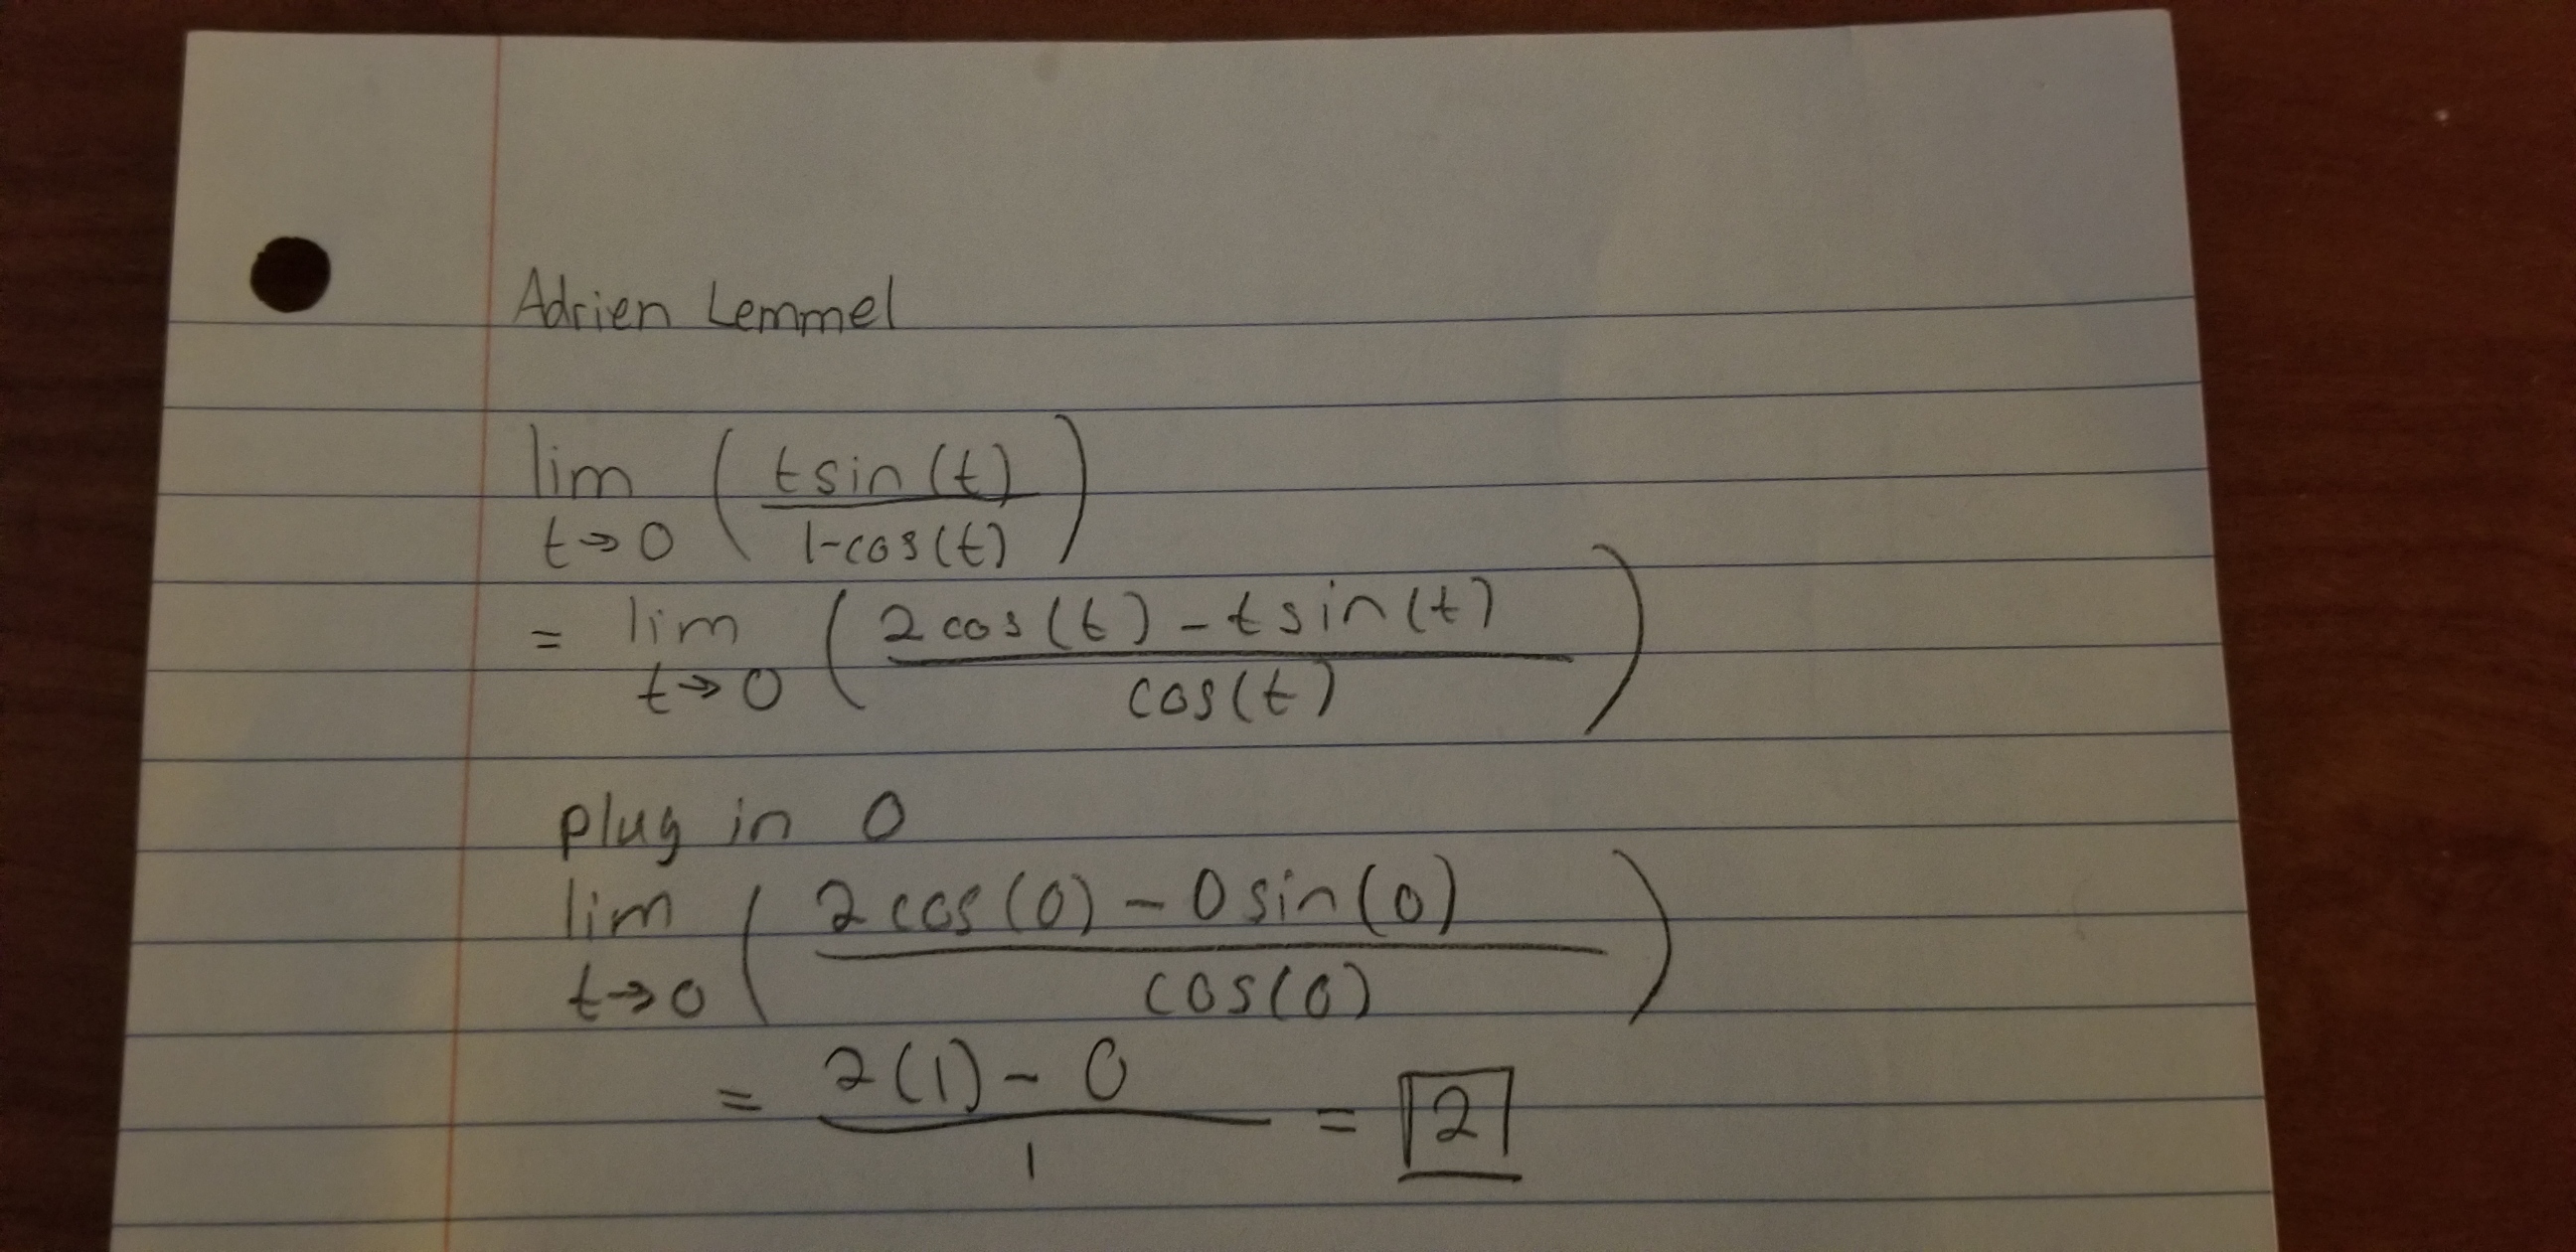 Adrien Lemmel
lim t→0 ( tsin(t) / 1-cos(t) )
= lim t→0 ( 2cos(t) - tsin(t) / cos(t) )
plug in 0
lim t→0 ( 2cos(0) - 0sin(0) / cos(0) )
= 2(1) - 0 / 1 = 2